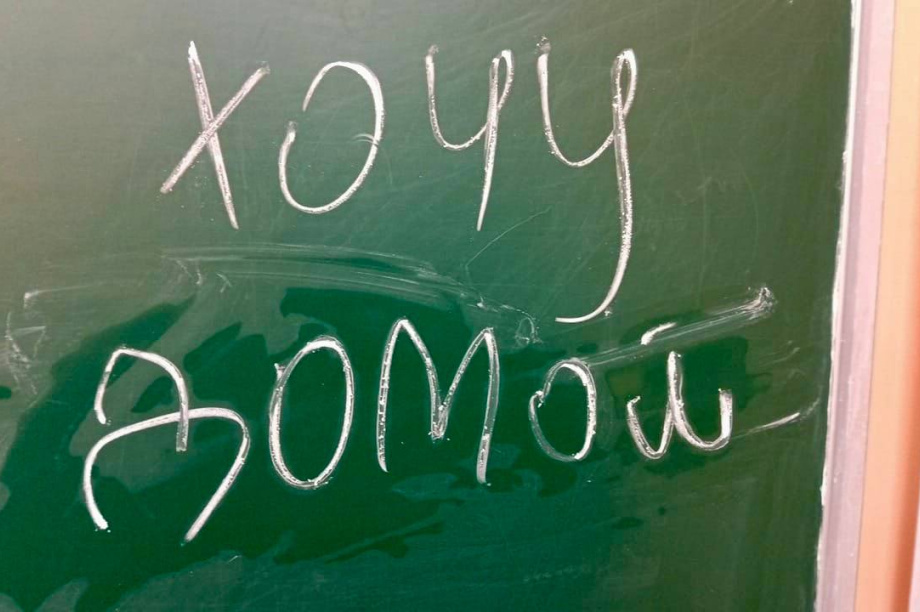 хочу
домой